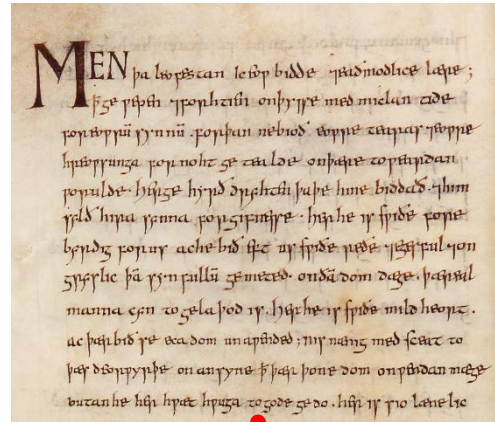 MEN þa leofestan ic eow bidde ⁊ eadmodlice lære;
þ ge wepen ⁊ forhtien on þysse medmiclan tide
for eowrū synnū. forþan ne bioð eowre tearas ⁊ eowre
hreowsunga for noht ge tealde on þære toweardan
worulde. her ge hyrð dryhten þa þe hine biddað. ⁊ him
seleð hira synna forgifnesse. her he is swiðe fore
byrdig for us ac he bið eft us swiðe reðe. ⁊ egesful ⁊ on
gryslic þā synfullū gemeted. on ðā dom dæge. þær eal
manna cyn to gelaþod is. her he is swiðe mild heort.
ac þær bið se eca dom unawended; nis nænig med sceat to
þæs deorwyrþe on ansyne þ þær þone dom onwendan mæge
butan he her hwæt hwuga to gode ge do. her is sio lænelic